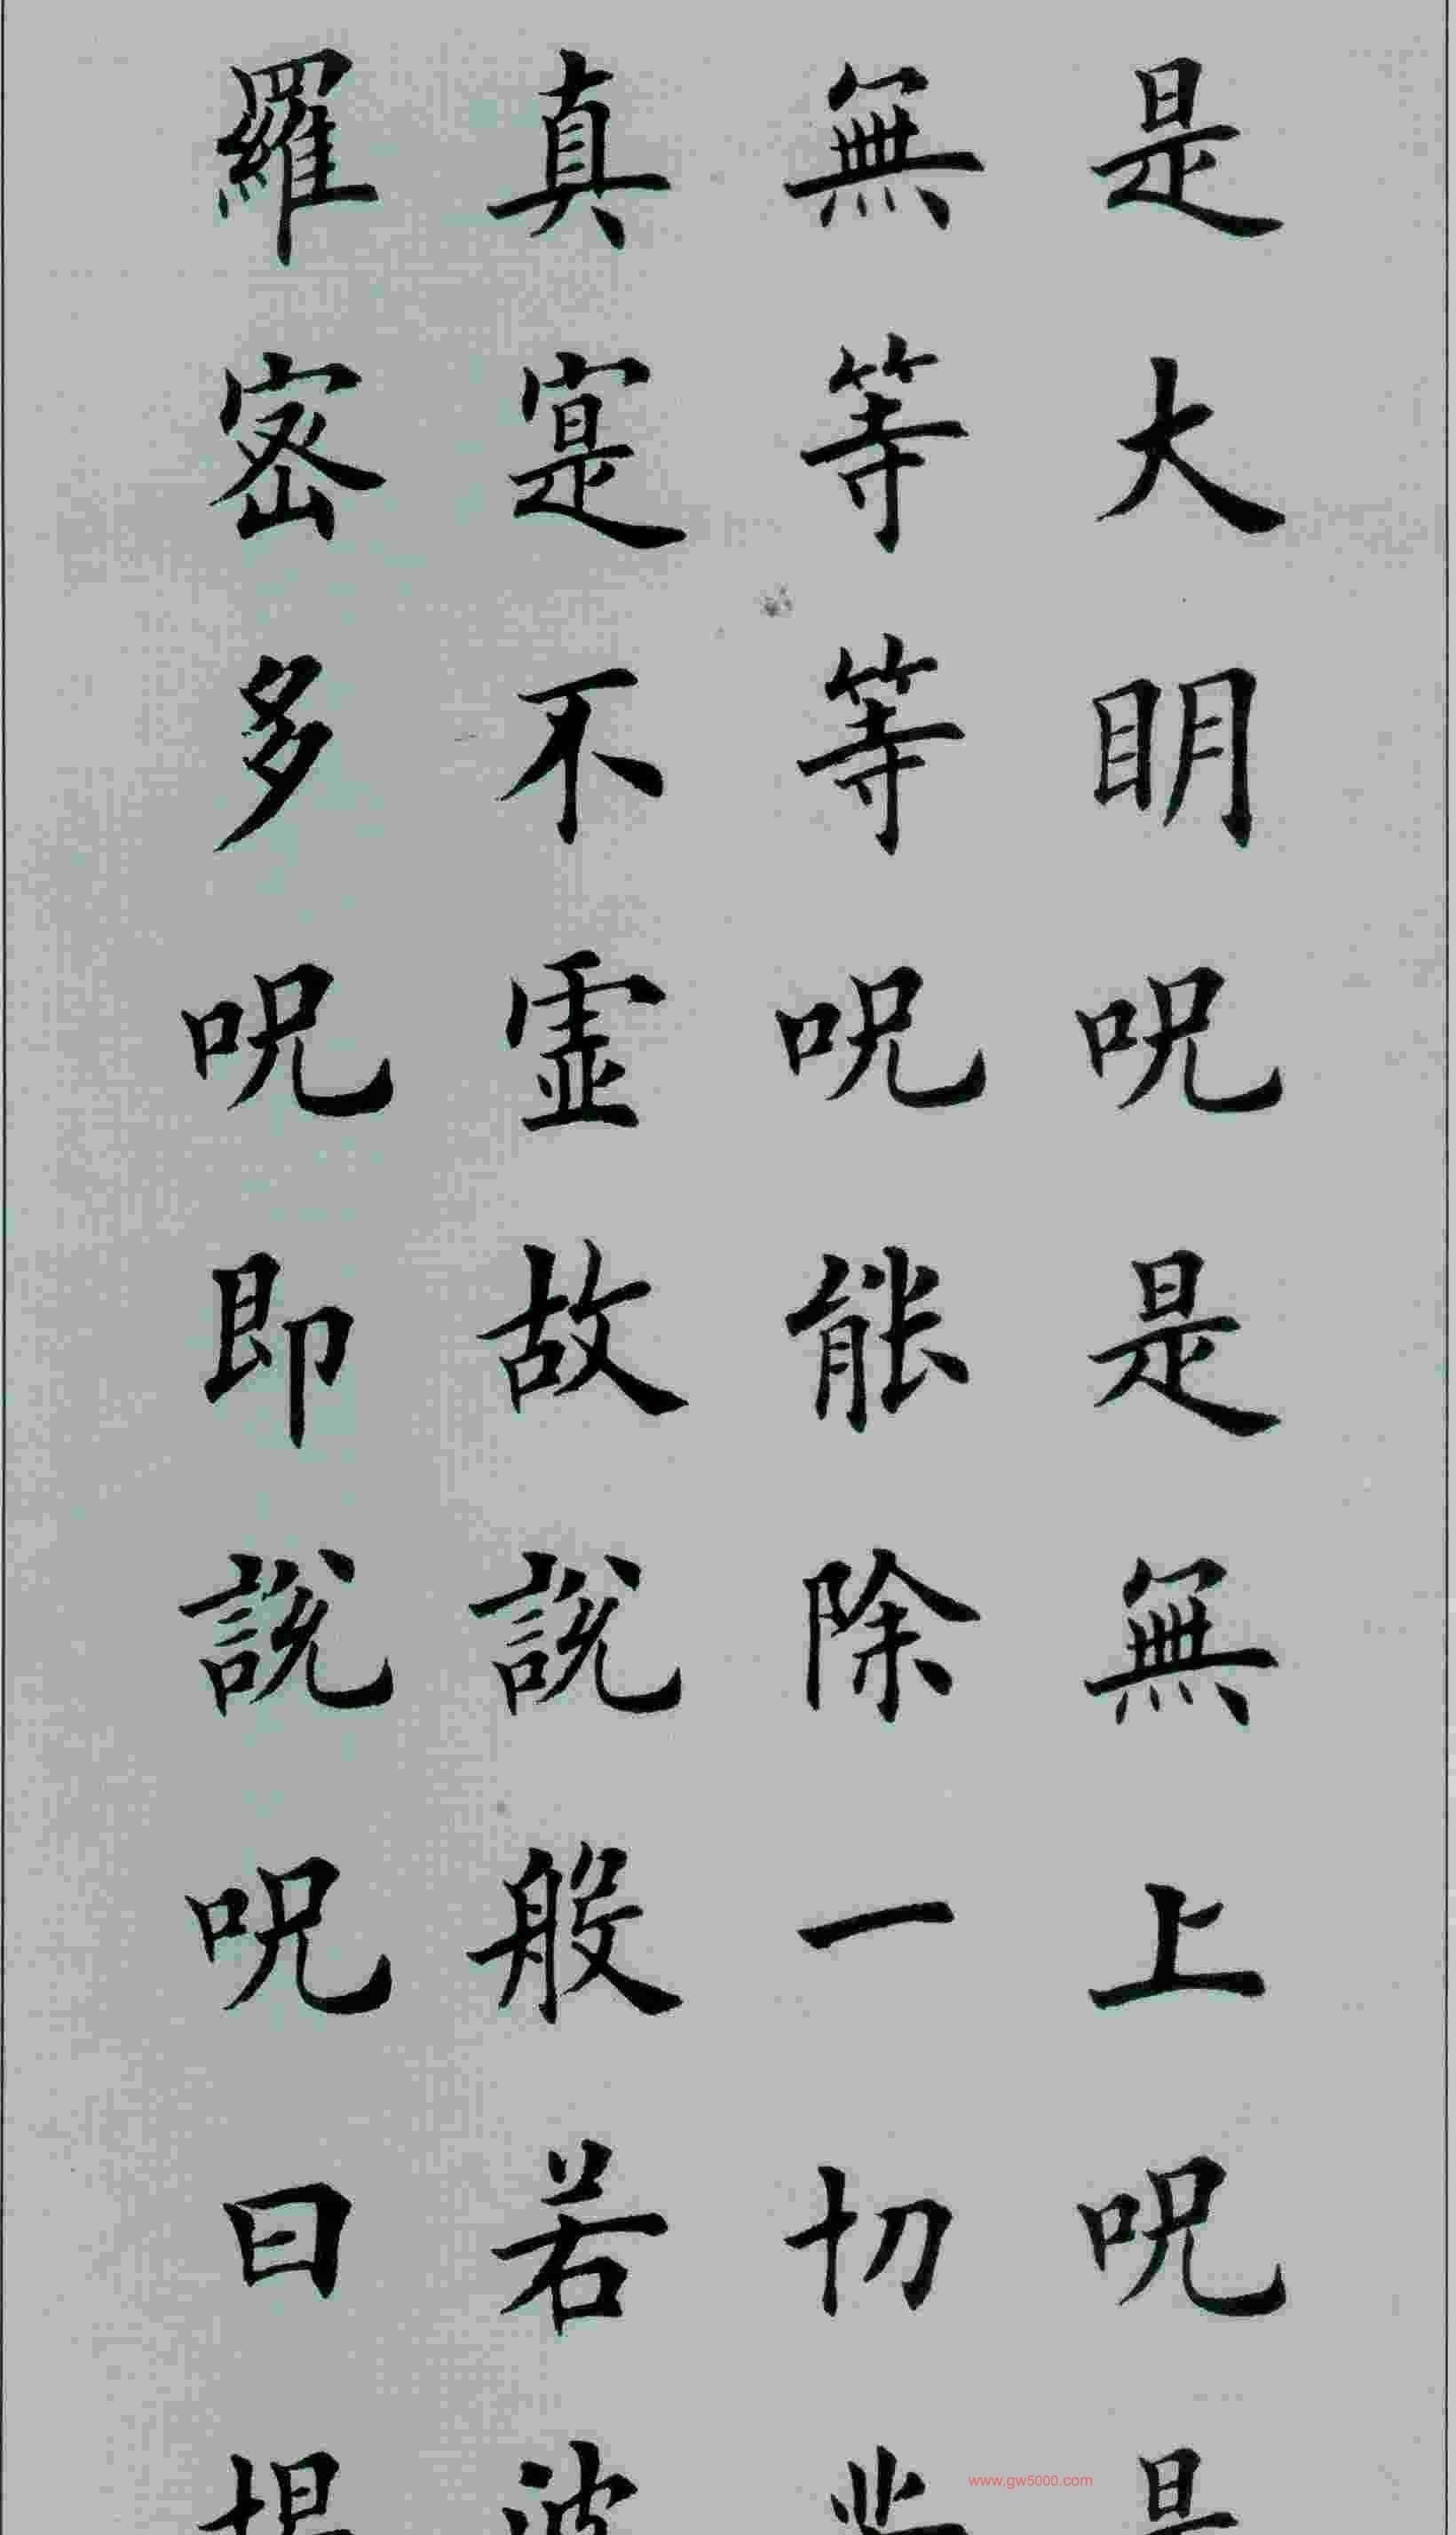 是大明呪是無上呪是
無等等呪能除一切
真寔不虛故說般若波
羅密多呪即說呪曰揭
www.gw5000.com